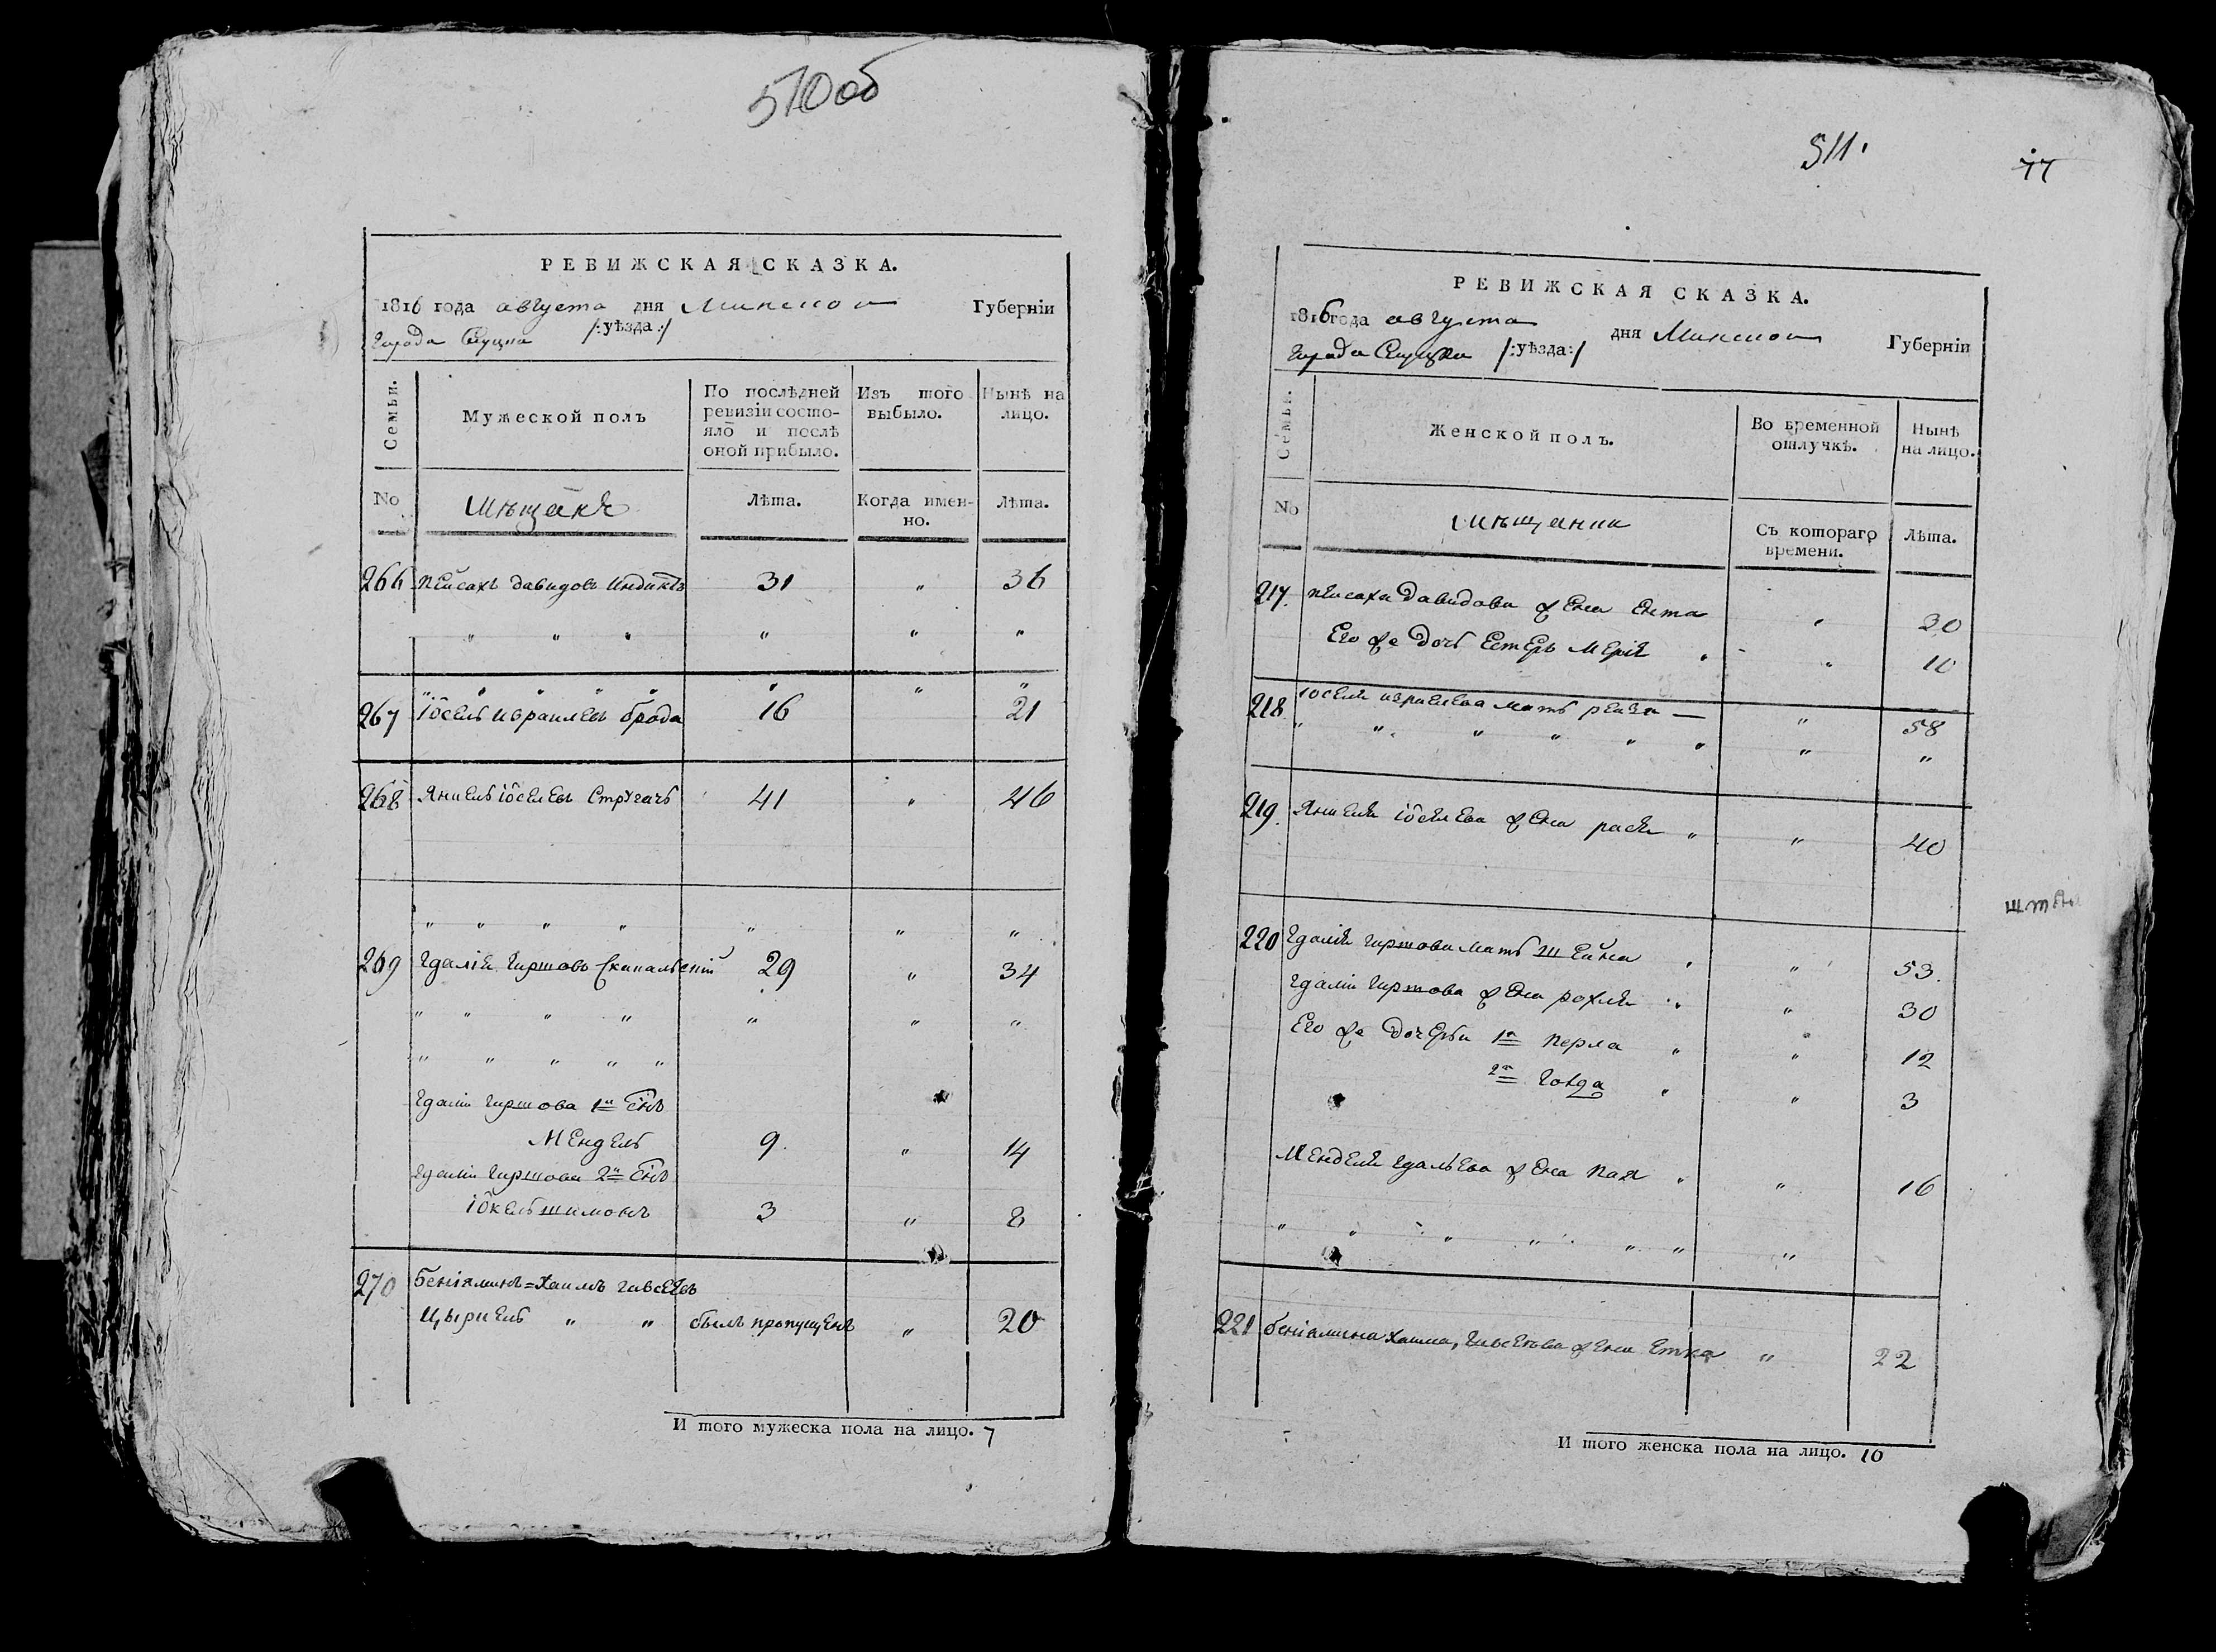 510об
РЕВИЖСКАЯ СКАЗКА.
1816 года августа дня Минской Губерніи
города Слуцка /:уѣзда:/
Семьи.
Мужеской полъ
По послѣдней ревизіи состояло и послѣ оной прибыло.
Изъ того выбыло.
Нынѣ на лицо.
No
Мѣщанъ
Лѣта.
Когда именно.
Лѣта.
266 Пейсахъ Давидовъ Индикъ 31 " 36
" " " " " "
" " " " " " " "
267 Іосель Израилевъ Брода 16 21
268 Янкель Іоселевъ Стругачъ 41 " 46
" " " " " " "
269 Гдалія Гиршовъ Скипальскій 29 " 34
" " " " " " "
" " " " "
Гдаліи Гиршова 1й сынъ
Мендель 9 " 14
Гдаліи Гиршова 2й сынъ
Іокель Шимонъ 3 " 8
270 Беніяминъ=Хаимъ
Цыркель " " былъ пропущенъ " 20
И того мужеска пола на лицо. 7
511.
77
РЕВИЖСКАЯ СКАЗКА.
1816 года августа дня Минской Губерніи
города Слуцка /:уѣзда:/
Семьи.
Женской полъ.
Во временной отлучкѣ.
Нынѣ на лицо.
No
Мѣщанки
Съ котораго времени.
Лѣта.
217. Пейсаха Давидова жена Ента " 30
Его же дочь Естеръ Мерія " " 10
218. Іоселя Израелева мать Рейза — " 58
" " " " " " " "
219. Янкеля Іоселева жена Рася " " 40
220 Гдалія Гиршова мать Шейна " " 53.
Гдаліи Гиршова жена Рохля " " 30
Его же дочерьи 1я Перла " " 12
2я Голда " " 3
Менделя Гдальева жена Пая " " 16
" " " " " " "
221 Беніямина Хаима, жена Етка " 22
И того женска пола на лицо. 10